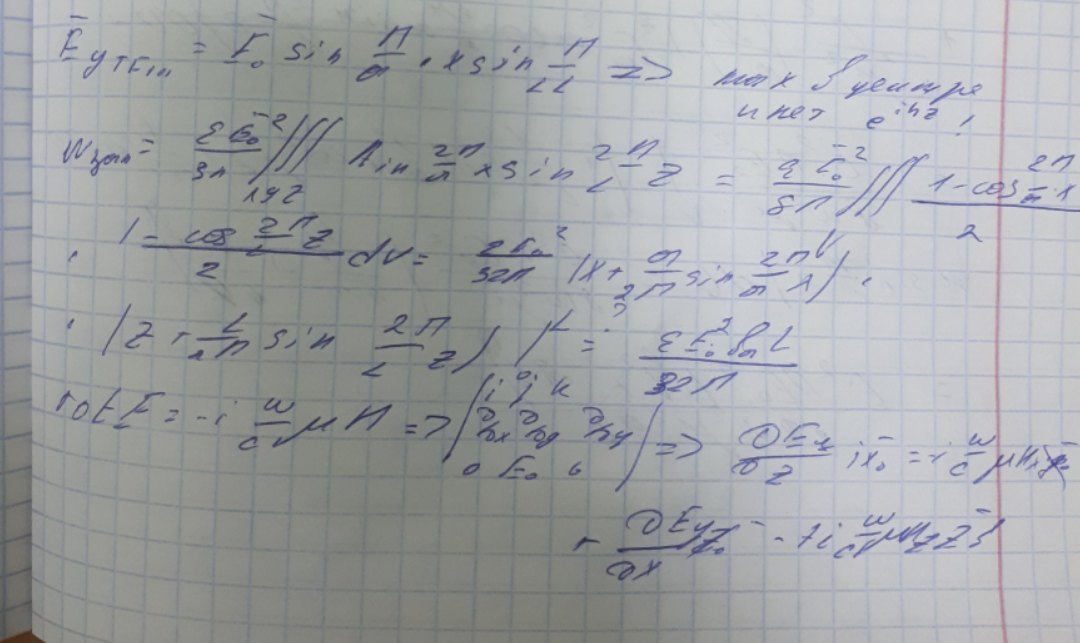 E̅y TE₁₀₁ = E̅₀ sin π/a · x sin π/L z => max в центре
и нет e^{ihz}!
W_зап = εE̅₀²/8π ∭_{xyz} sin² π/a x sin² π/L z = εE̅₀²/8π ∭ (1 - cos 2π/a x)/2
· (1 - cos 2π/L z)/2 dV = εE₀²/32π (x + a/2π sin 2π/a x) ·
· (z + L/2π sin 2π/L z) |^L = εE₀² baL/32π
rot E = -i ω/c μ H => | i j k
∂/∂x ∂/∂y ∂/∂y
0 E₀ 0 | => ∂Ey/∂z i x̅₀ = -i ω/c μ Hx x̅₀
+ ∂Ey/∂x z̅₀ - 7i ω/c μ Hz z̅}